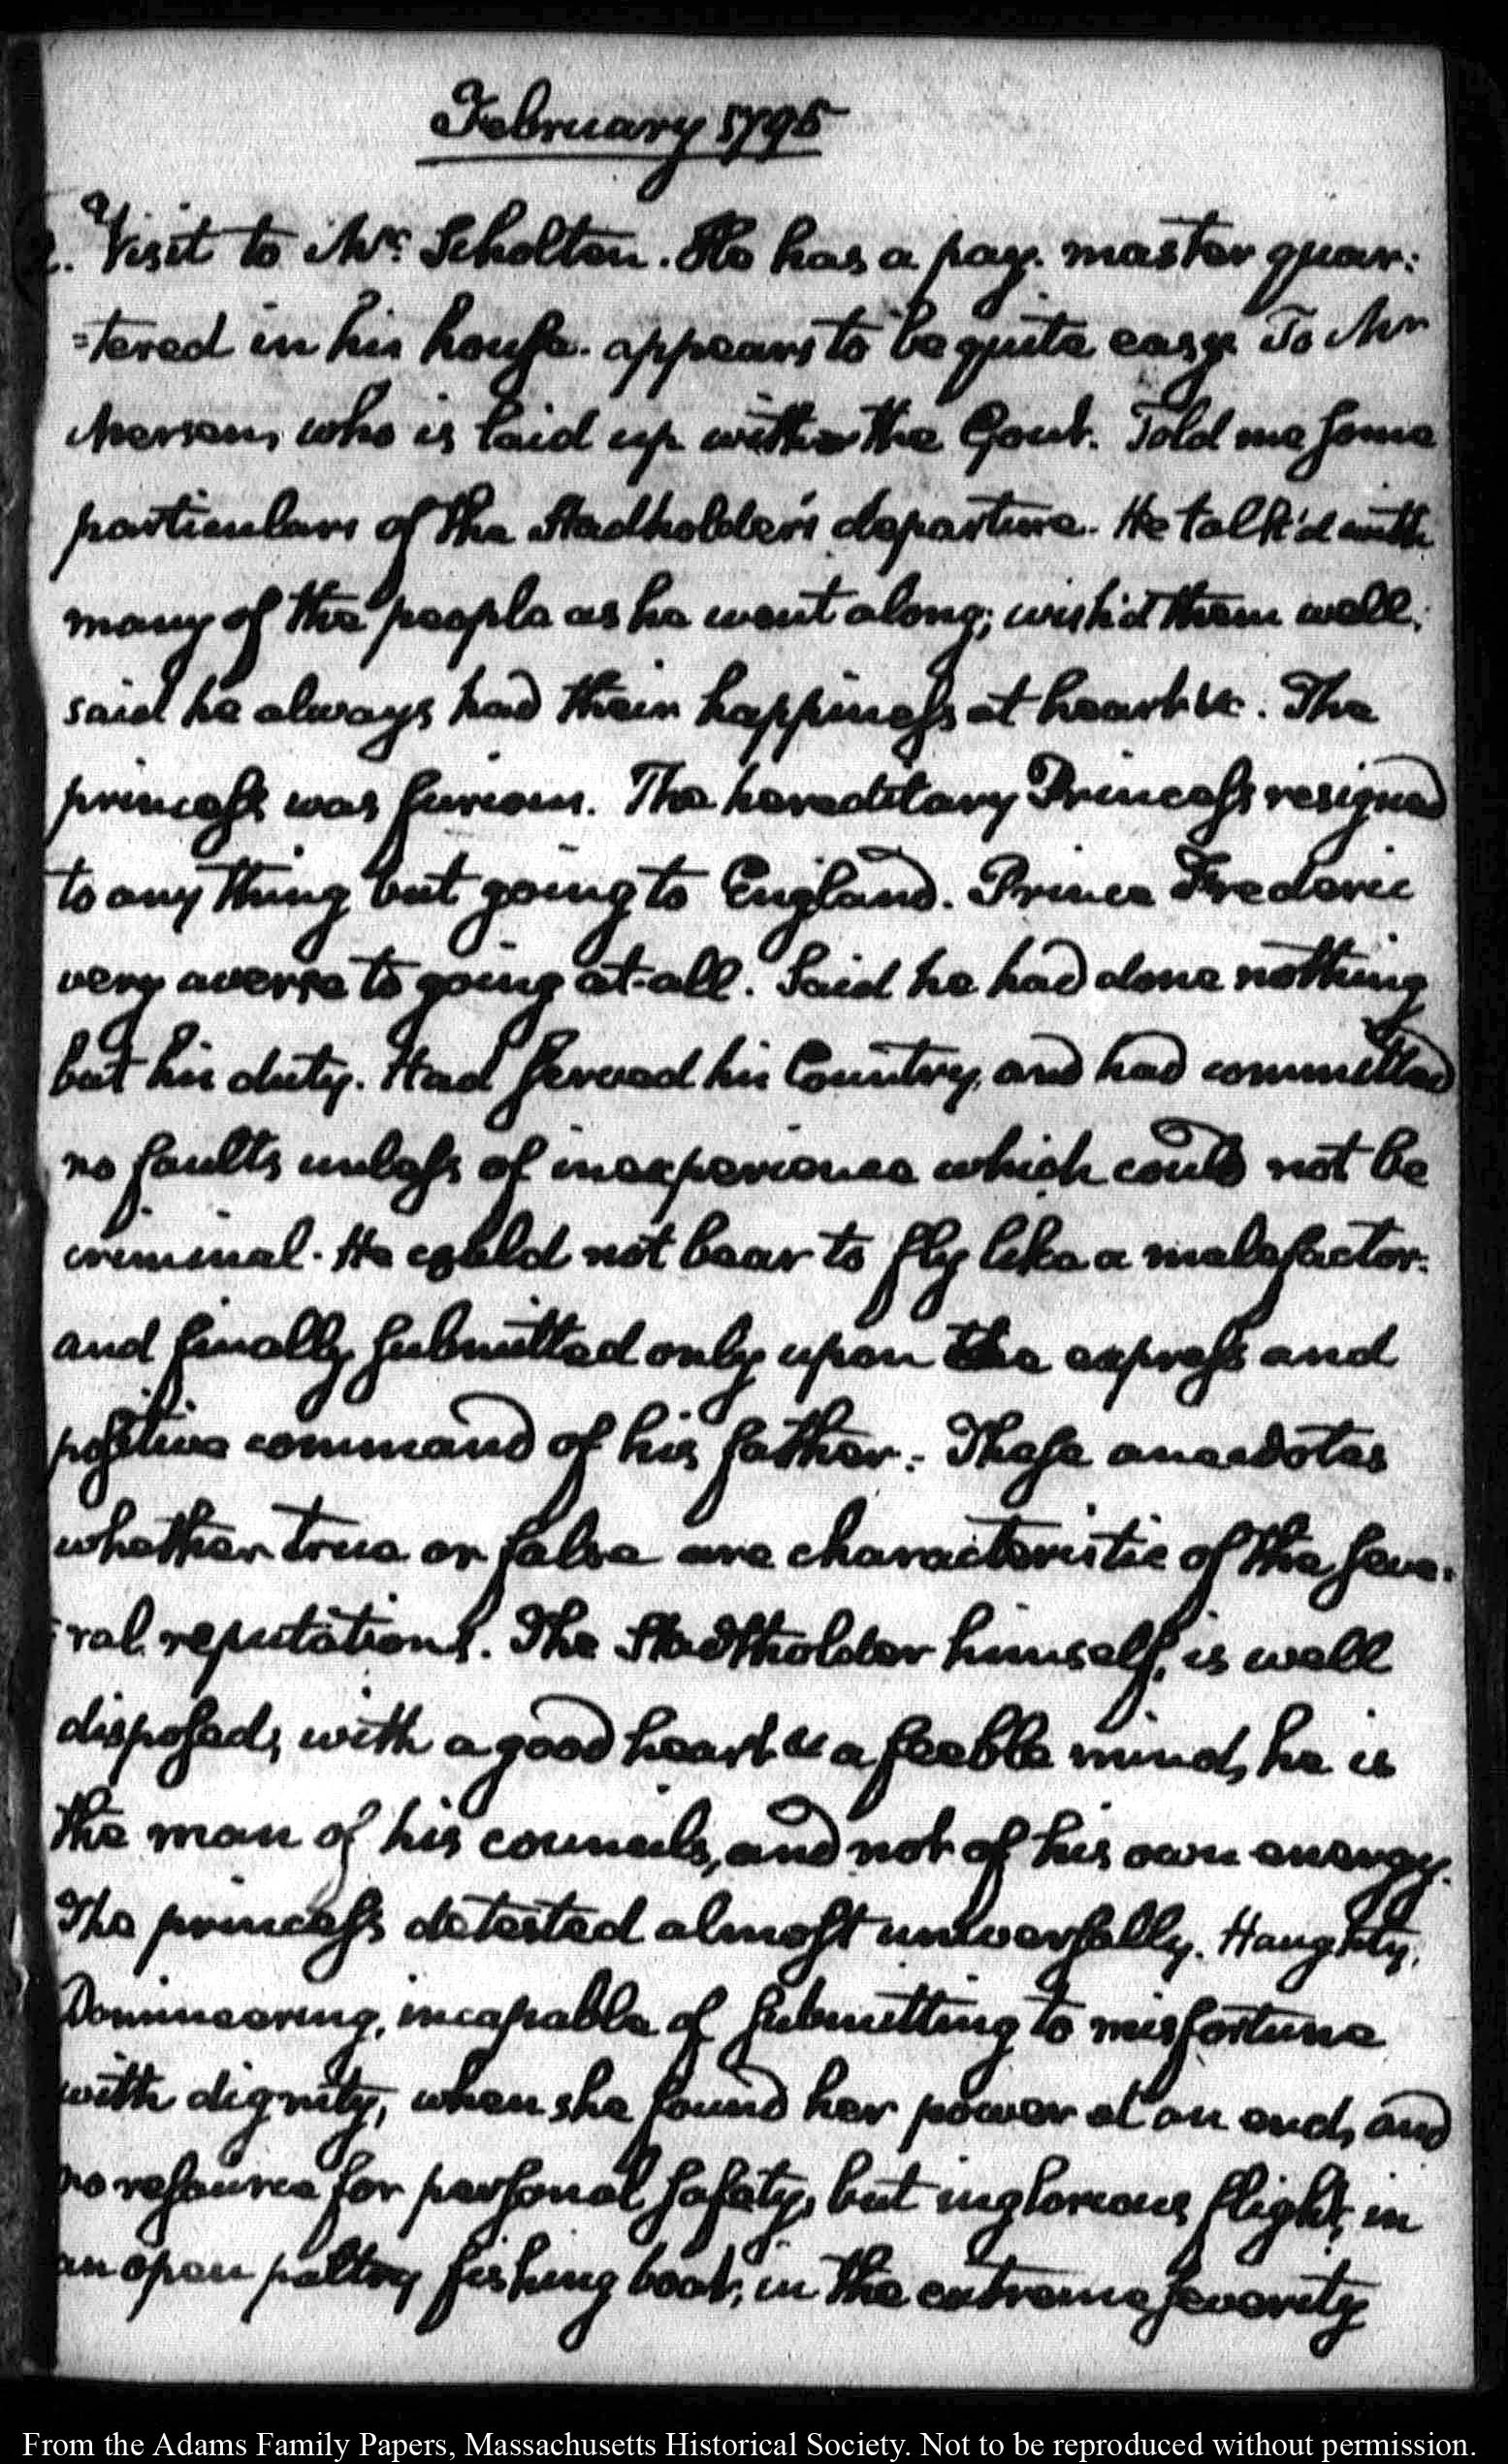 February 1795
2. Visit to Mr: Scholten. He has a pay-master quar:
=tered in his house. appears to be quite easy. To Mr
who is laid up with the Gout. Told me some
particulars of the Stadholder's departure. He talk'd with
many of the people as he went along; wish'd them well;
said he always had their happiness at heart &c. The
princess was furious. The hereditary Princess resigned
to any thing but going to England. Prince Frederic
very averse to going at-all. Said he had done nothing
but his duty. Had served his Country, and had committed
no faults unless of inexperience which could not be
criminal. He could not bear to fly like a malefactor.
and finally submitted only upon the express and
positive command of his father. These anecdotes
whether true or false are characteristic of the seve:
:ral reputations. The Stadtholder himself, is well
disposed, with a good heart & a feeble mind, he is
the man of his councils, and not of his own energy.
The princess detested almost universally. Haughty,
Domineering, incapable of submitting to misfortune
with dignity, when she found her power at an end, and
no resource for personal safety, but inglorious flight, in
an open paltry fishing boat, in the extreme severity
From the Adams Family Papers, Massachusetts Historical Society. Not to be reproduced without permission.